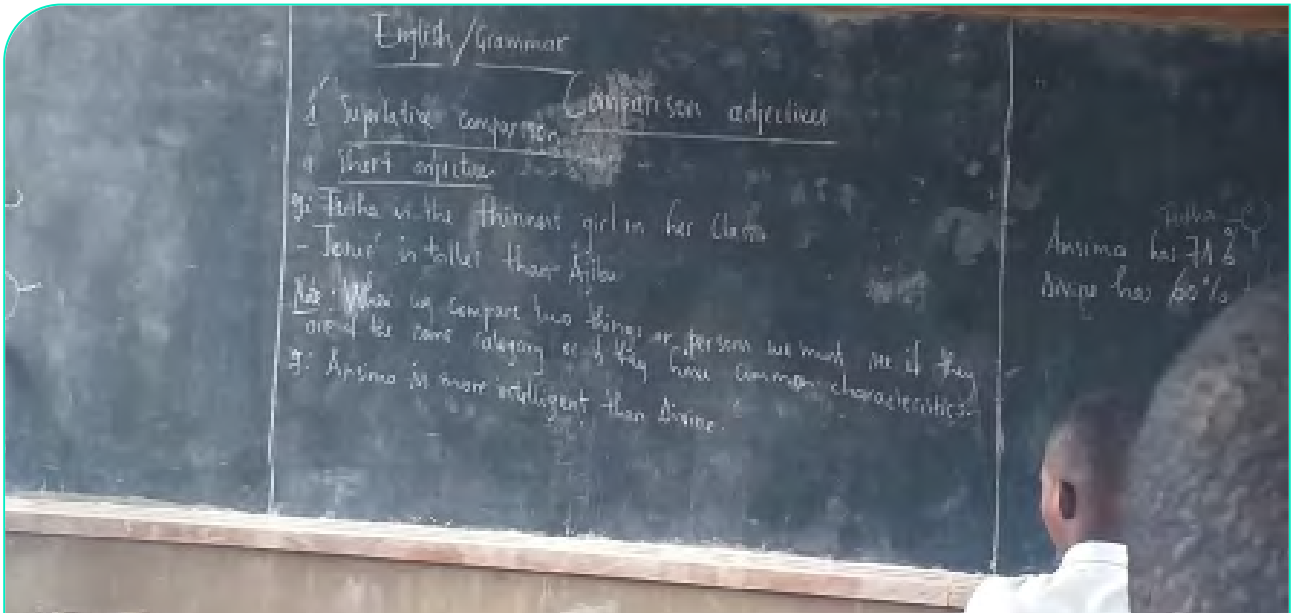 English/Grammar
Comparison adjectives
1 Superlative comparison
a Short adjective
g: is the thinnest girl in her Class
- is taller than
Note: When we compare two things or person we must see if they
are of the same category or if they have common characteristics.
g: Ansima is more intelligent than Divine.
Ansima has 71
Divine has 60%